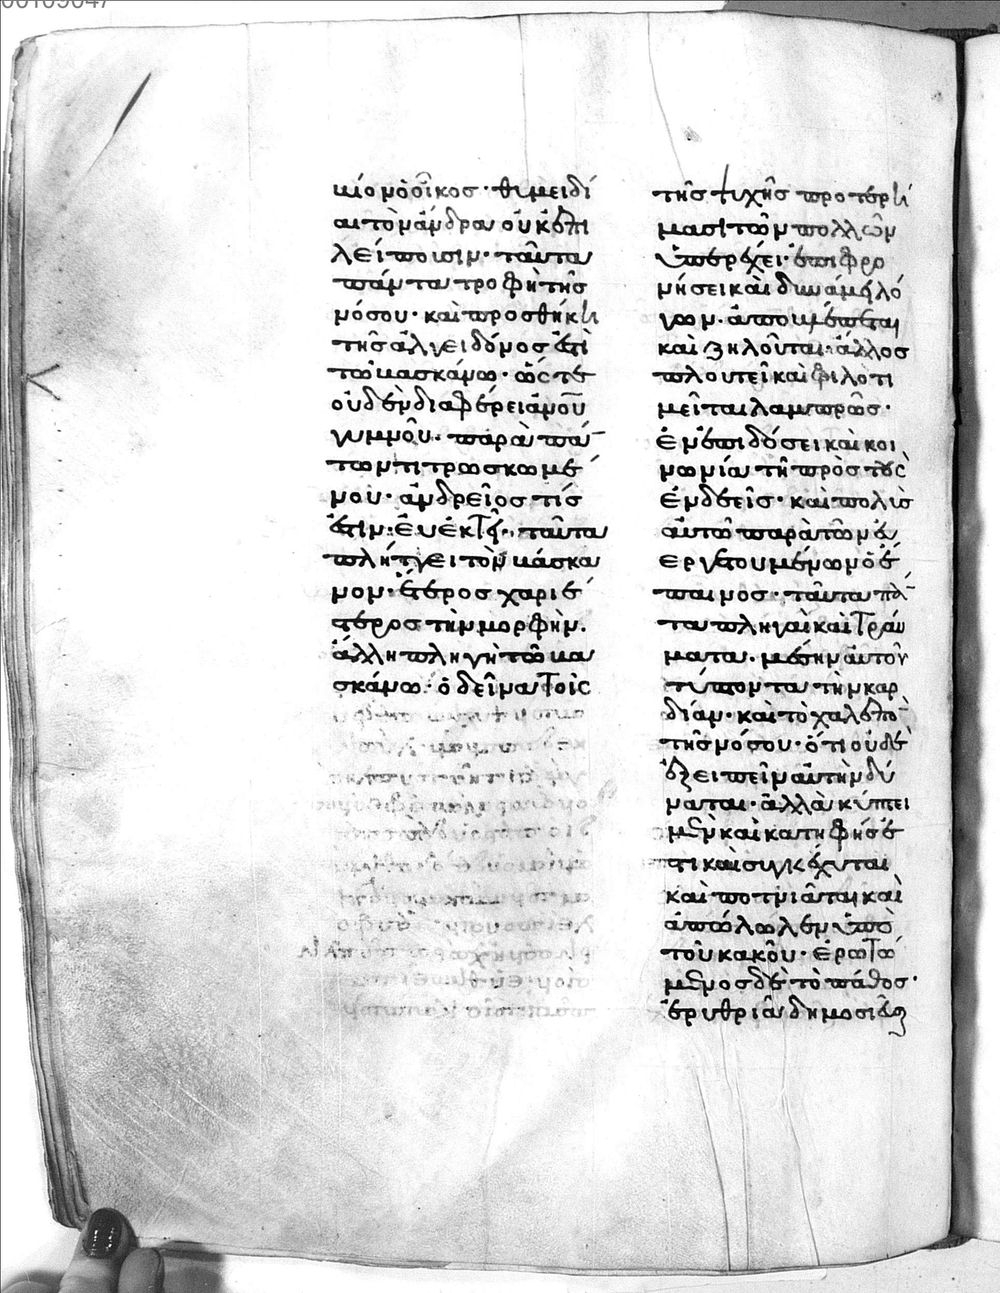 κίονὁοἶκοσ· θυμειδί
αιτὸνἄνδρα οὐκἐπι
λείπουσιν· ταῦτα
πάντα τροφὴτῆσ
νόσου· καὶπροσθήκη
τῆσἀλγειδόνοσἐπὶ
τῶβασκάνω· ὥστε
οὐδὲνδιαφέρειἀνοῦ
γυμνοῦ· παρὰπάν
τωντιτρωσκομέ
νου· ἀνδρεῖοσ τίσ
ἐστιν· εὐέκτης· ταῦτα
πλήττει τὸνβάσκα
νον· ἕτεροσ χαριέ
στεροσ τὴνμορφήν.
ἄλλη πληγὴτῶβα
σκάνω· ὁ δεῖνα τοῖς
τῆσ ψυχῆσ προτερή
μασι τῶν πολλῶν
ὑπερέχει· ἐπιφρο
νήσεικαὶ δυνάμειλό
γων· ἀποβλέπεται
καὶ ζηλοῦται· ἄλλοσ
πλουτεῖκαὶφιλοτι
μεῖταιλαμπρῶσ·
ἐνἐπιδόσεικαὶκοι
νωνία τῆπρὸστοὺς
ἐνδεεῖσ· καὶπολὺσ
αὐτῶπαρὰτῶνεὐ
εργετουμένωνὁἔ
παινοσ· ταῦταπάν
ταπληγαὶκαὶτραύ
ματα. μέσηναὐτοῦ
τύπτοντα τὴνκαρ
δίαν· καὶτὸχαλεπὸν
τῆσνόσου· ὅτιοὐδὲ
ἐξειπεῖναὐτὴνδύ
ναται· ἀλλὰκύπτει
μὲνκαὶκατηφήσἐ
στικαὶσυγκέχυται
καὶποτνιᾶταικαὶ
ἀπόλωλεν ὑπὸ
τοῦκακοῦ· ἐρωτώ
μενοσδὲτὸπάθοσ·
ἐρυθριᾶδημοσιεῦ